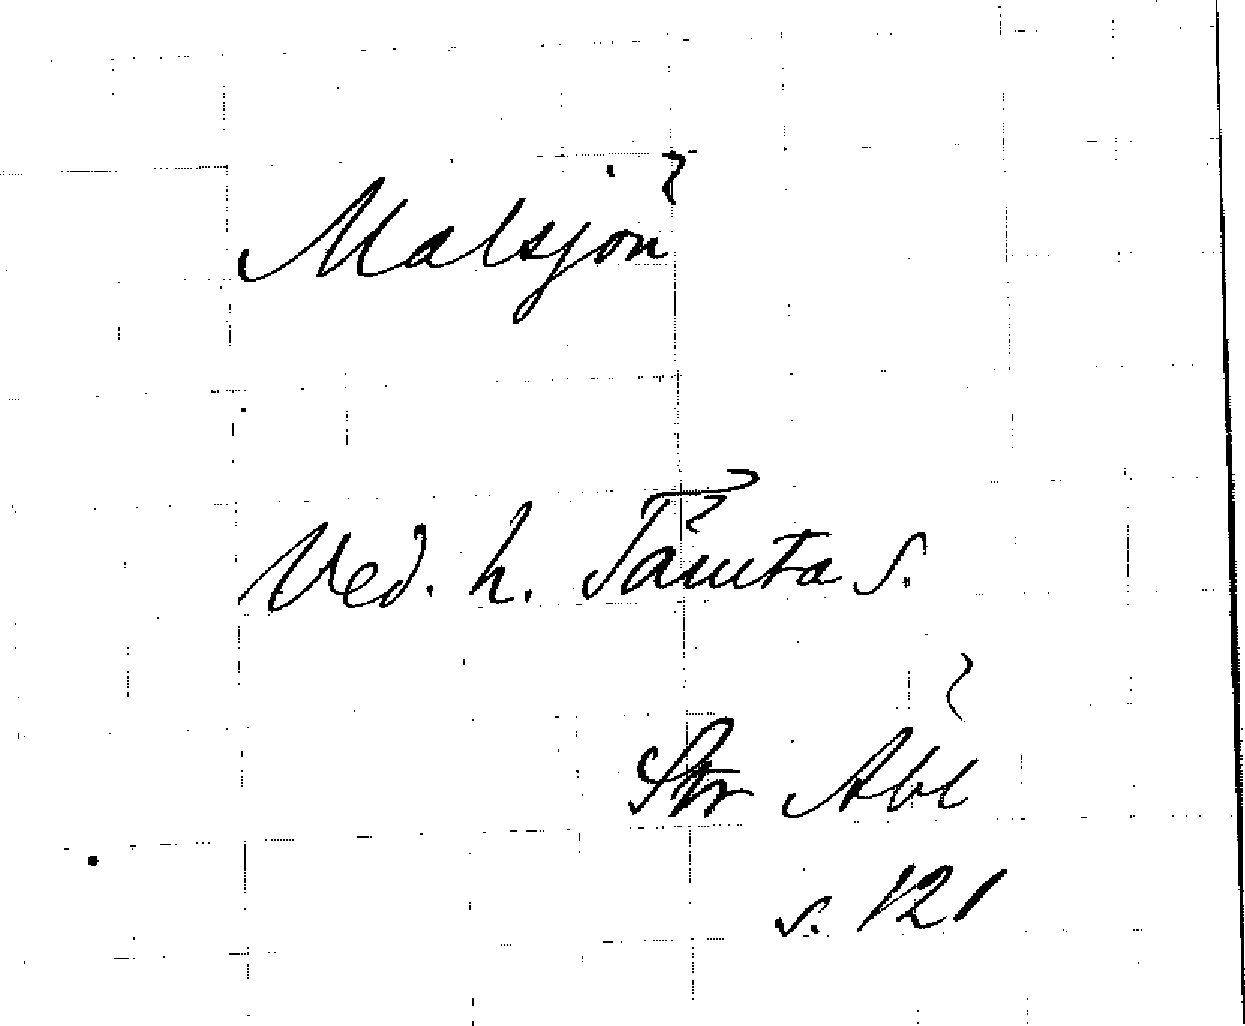 Malsjön
Ved. h. Tämta s.
Str Abl
s. 121